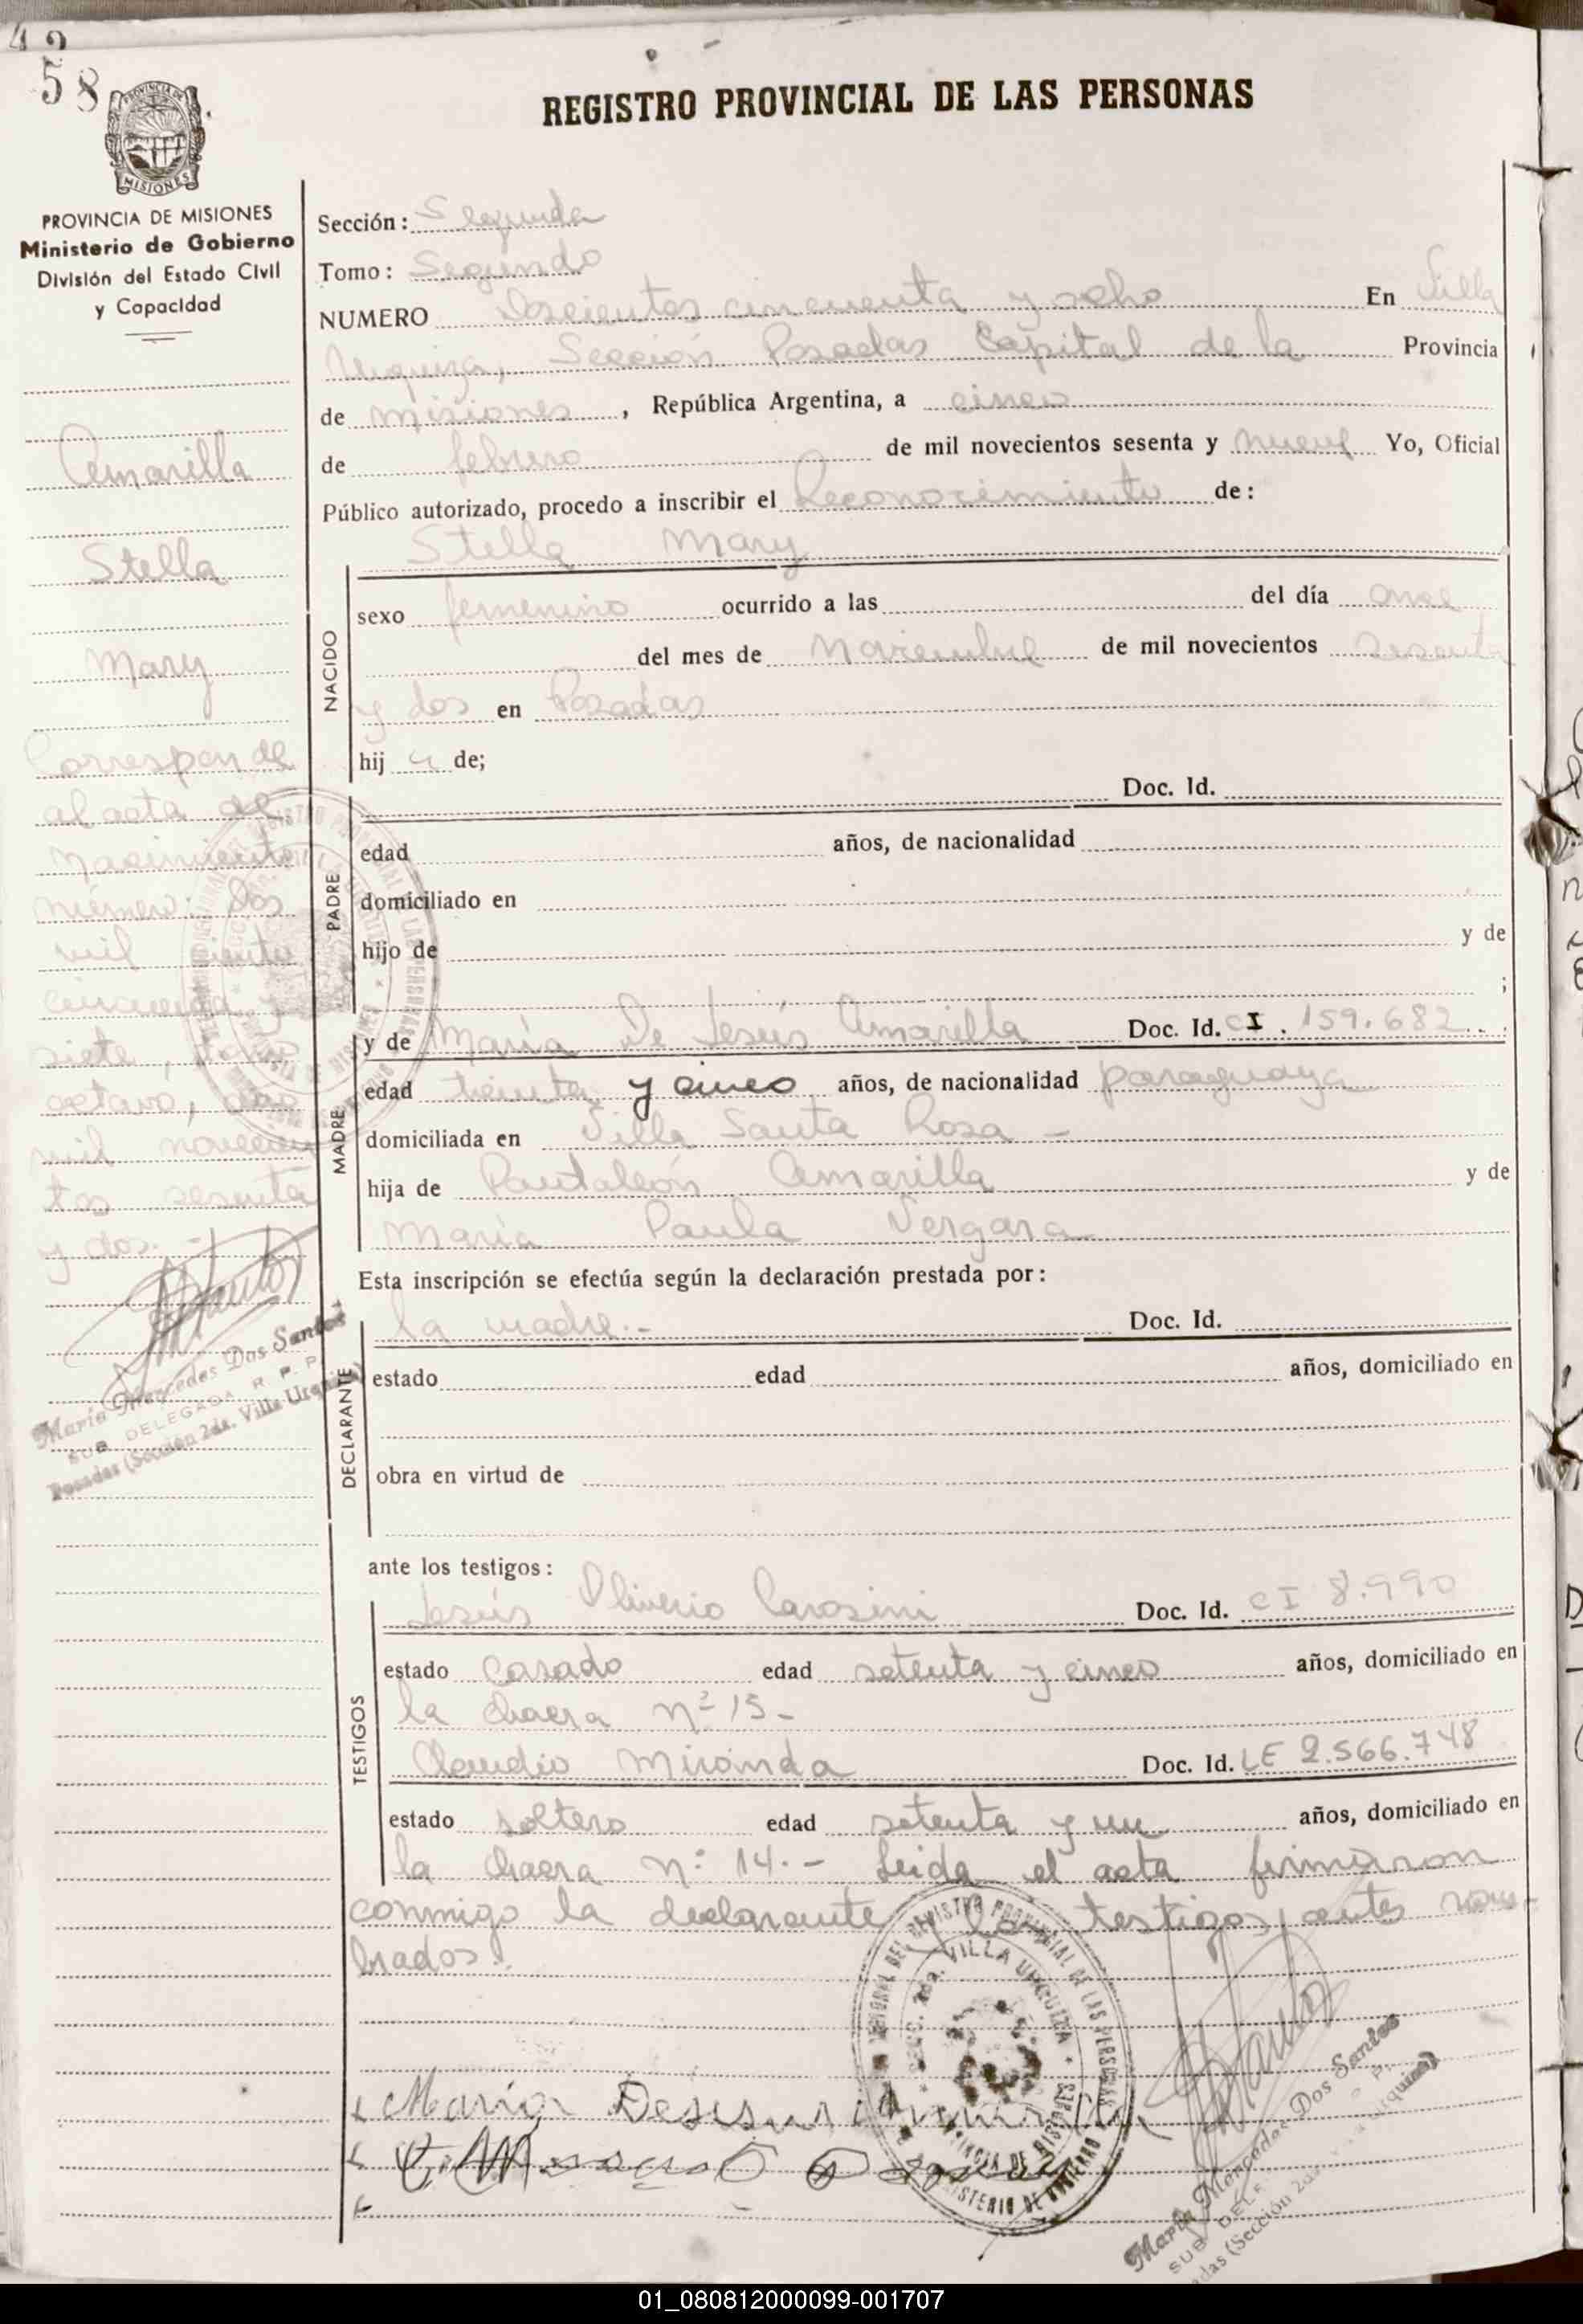 42
58
MISIONES
PROVINCIA DE MISIONES
Ministerio de Gobierno
División del Estado Civil
y Capacidad
Amarilla
Stella
Mary
Corresponde
al acta de
nacimiento
número: dos
mil ciento
cincuenta y
siete, tomo
octavo, año
mil novecien
tos sesenta
y dos.-
María Mercedes Dos Santos
SUB DELEGADA R. P. P.
Posadas (Sección 2da. Villa Urquiza)
REGISTRO PROVINCIAL DE LAS PERSONAS
Sección: Segunda
Tomo: Segundo
NUMERO Doscientos cincuenta y ocho En Villa
Urquiza, Sección Posadas Capital de la Provincia
de Misiones, República Argentina, a cinco
de febrero de mil novecientos sesenta y nueve Yo, Oficial
Público autorizado, procedo a inscribir el Reconocimiento de:
Stella Mary
NACIDO
sexo femenino ocurrido a las del día once
del mes de Noviembre de mil novecientos sesenta
y dos en Posadas
hij a de;
Doc. Id.
PADRE
edad años, de nacionalidad
domiciliado en
hijo de y de
;
MADRE
y de María De Jesús Amarilla Doc. Id. CI. 159.682
edad treinta y cinco años, de nacionalidad paraguaya
domiciliada en Villa Santa Rosa -
hija de Pantaleón Amarilla y de
María Paula Vergara
Esta inscripción se efectúa según la declaración prestada por:
DECLARANTE
la madre.- Doc. Id.
estado edad años, domiciliado en
obra en virtud de
ante los testigos:
TESTIGOS
Jesús Oliverio Carosini Doc. Id. CI 8.990
estado Casado edad setenta y cinco años, domiciliado en
la chacra nº 15-
Claudio Miranda Doc. Id. LE 2.566.748
estado soltero edad setenta y un años, domiciliado en
la chacra nº 14.- Leida el acta firmaron
conmigo la declarante y los testigos antes nom-
brados.
María Desesus Amarilla
María Mercedes Dos Santos
01_080812000099-001707